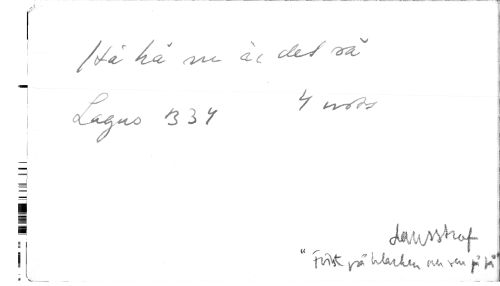 Hå hå nu är det så
Lagus B 34 4 vers
dansstrof
"Först på backen och sen på tå"